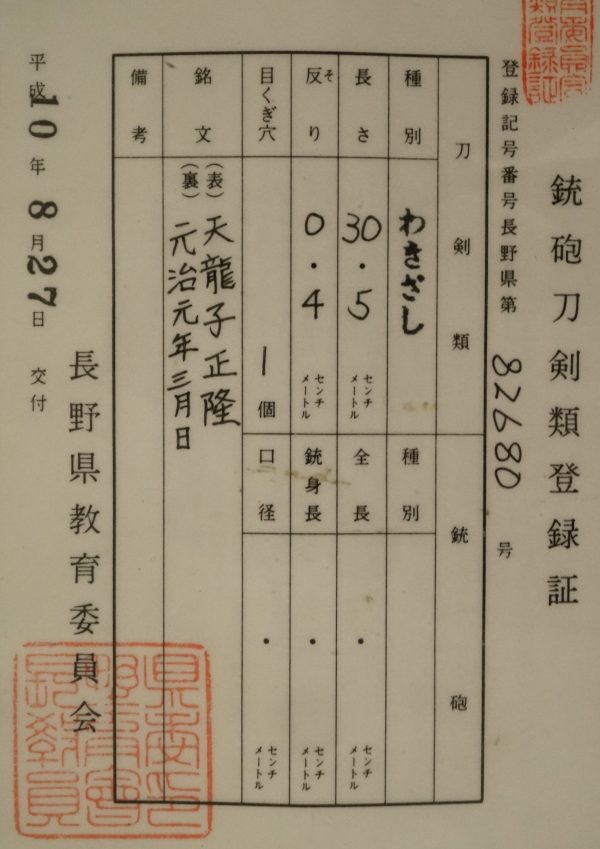 銃砲刀剣類登録証
登録記号番号長野県第82680号
刀剣類
銃砲
種別 わきざし
種別
長さ 30.5センチメートル
全長 ・センチメートル
反り 0.4センチメートル
そ
銃身長 ・センチメートル
目くぎ穴 1個
口径 ・センチメートル
銘文 (表)天龍子正隆
(裏)元治元年三月日
備考
長野県教育委員会
平成10年8月27日交付